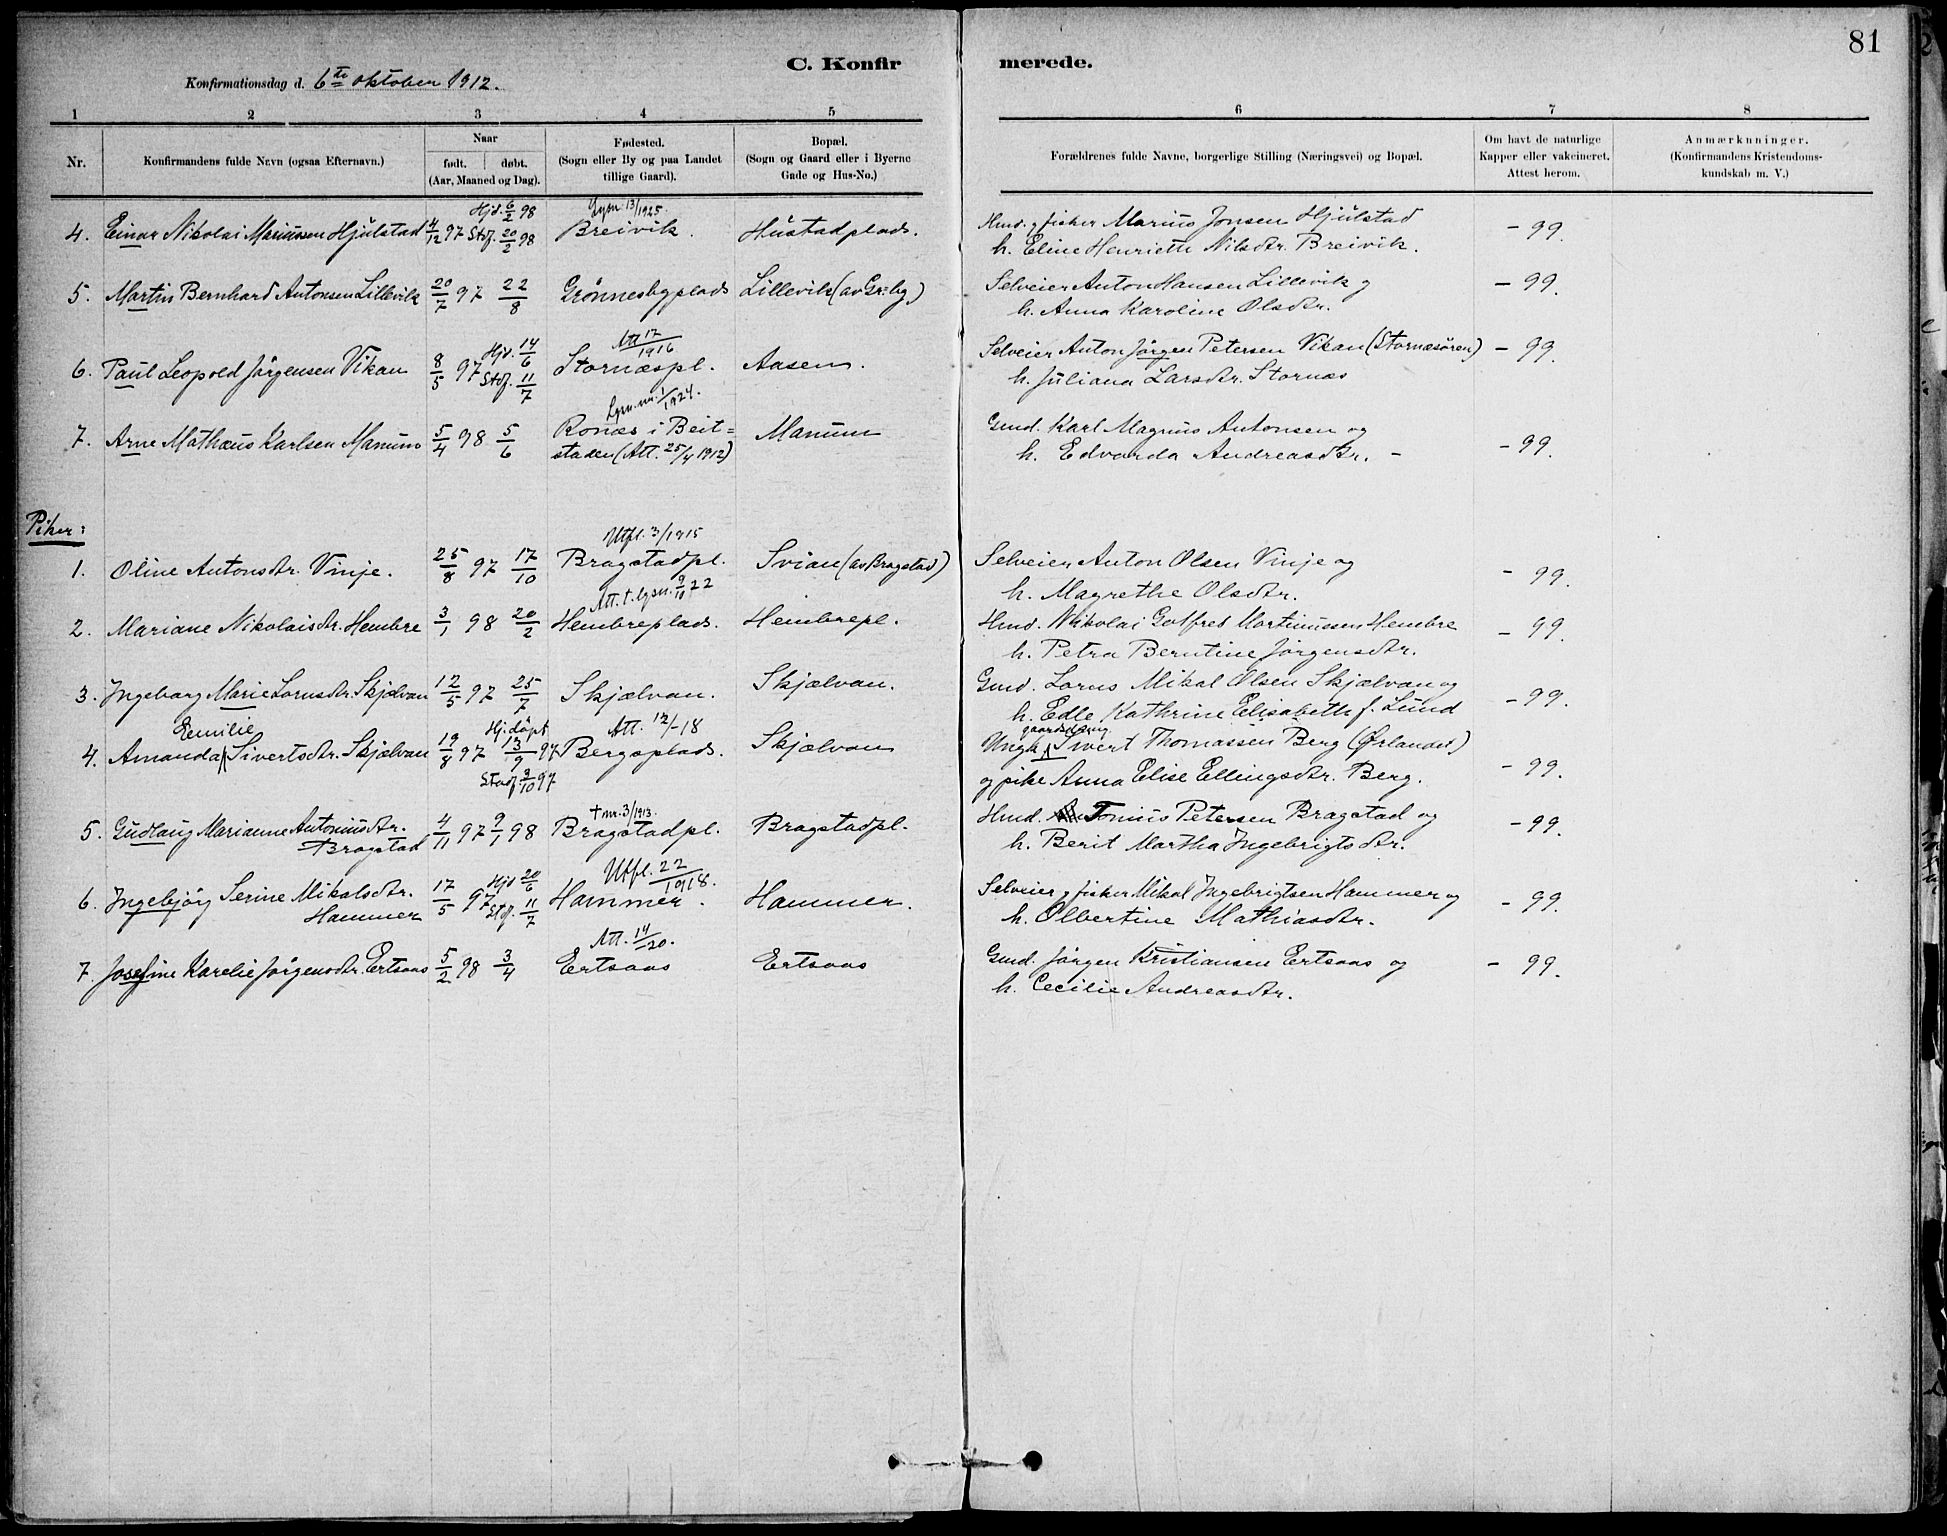 81
C. Konfirmerede.
Konfirmationsdag d. 6te oktober 1912.
1 2 3 4 5 6 7 8
Nr.
Konfirmandens fulde Navn (ogsaa Efternavn.)
Naar
født. døbt.
(Aar, Maaned og Dag).
Fødested.
(Sogn eller By og paa Landet
tillige Gaard).
Bopæl.
(Sogn og Gaard eller i Byerne
Gade og Hus-No.)
Forældrenes fulde Navne, borgerlige Stilling (Næringsvei) og Bopæl.
Om havt de naturlige
Kopper eller vakcineret.
Attest herom.
Anmærkninger.
(Konfirmandens Kristendoms-
kundskab m. V.)
Hjd. 6/2 98 Lysn. 13/1925
4. Einar Nikolai Mariussen Hjulstad 4/12 97 Stdf. 20/2 98 Breivik. Hustadplads. Hmd. og fisker Marius Jonsen Hjulstad - 99.
h. Eline Henriette Nilsdtr. Breivik.
5. Martin Bernhard Antonsen Lillevik 20/7 97 22/8 Grönnesbyplads Lillevik (av Gr:by) Selveier Anton Hansen Lillevik og - 99.
h. Anna Karoline Olsdtr.
Hjd. 14/6 Att 17/1916
6. Paul Leopold Jörgensen Vikan 8/5 97 Stdf. 11/7 Stornæspl. Aasen. Selveier Anton Jörgen Petersen Vikan (Stornæsören) - 99.
h. Juliana Larsdtr. Stornæs
Lysn. nr. 1/1924.
7. Arne Mathæus Karlsen Manum 5/4 98 5/6 Ronæs i Beit= Manum Gmd. Karl Magnus Antonsen og - 99.
staden (Att. 25/4 1912) h. Edvarda Andreasdtr. -
Piker:
Utfl. 3/1915
1. Oline Antonsdtr. Vinje. 25/8 97 17/10 Bragstadpl. Svian (av Bragstad) Selveier Anton Olsen Vinje og - 99.
h. Magrethe Olsdtr.
Att. t. lysn. 9/10 22
2. Mariane Nikolaisdtr. Hembre 3/1 98 20/2 Hembreplads. Hembrepl. Hmd. Nikolai Gotfred Martinussen Hembre - 99.
h. Petra Berntine Jörgensdtr.
3. Ingeborg Marie Lornsdtr. Skjelvan 12/5 97 25/7 Skjælvan. Skjælvan. Gmd. Lorns Mikal Olsen Skjælvan og - 99.
h. Edle Kathrine Elisabeth f. Lund
Emilie Hj. döpt Att. 12/-18 gaardsdreng
4. Amanda Sivertsdtr. Skjelvan 19/8 97 13/9 97 Bergsplads. Skjælvan Ungk. Sivert Thomassen Berg (Ørlandet) - 99.
Stadf 3/10 97 og pike Anna Elise Ellingsdtr. Berg.
† nr. 3/1913.
5. Gudlaug Marianne Antoniusdtr. 4/11 97 9/1 98 Bragstadpl. Bragstadpl. Hmd. Tonius Petersen Bragstad og - 99.
Bragstad h. Berit Martha Ingebrigtsdtr.
Hjd 20/6 Utfl. 22/1918.
6. Ingebjörg Serine Mikalsdtr. 17/5 97 Stdf. 11/7 Hammer. Hammer. Selveier og fisker Mikal Ingebrigtsen Hammer og - 99.
Hammer h. Olbertine Mathiasdtr.
Att. 14/-20.
7. Josefine Karelie Jörgensdtr. Ertsaas 5/2 98 3/4 Ertsaas Ertsaas Gmd. Jörgen Kristiansen Ertsaas og - 99.
h. Cecilie Andreasdtr.